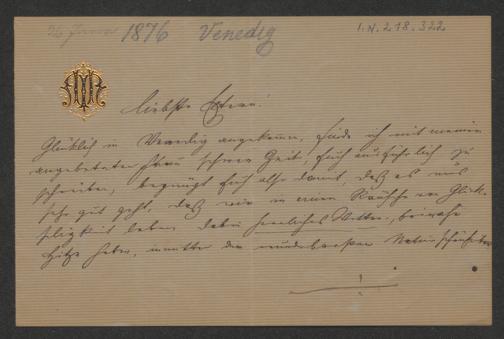 1876 Venedig
I.N. 218.322
Liebste Eltern!
Glücklich in Venedig angekommen, finde ich mit meiner
angebeteten Frau schwer Zeit, Euch ausführlich zu
schreiben, begnügt Euch also damit, daß es uns
sehr gut geht, daß wir in einem Rausche von Glück-
seligkeit leben, dabei herrliches Wetter, beinahe
Hitze haben, inmitten der wunderbarsten Naturschönheiten
!